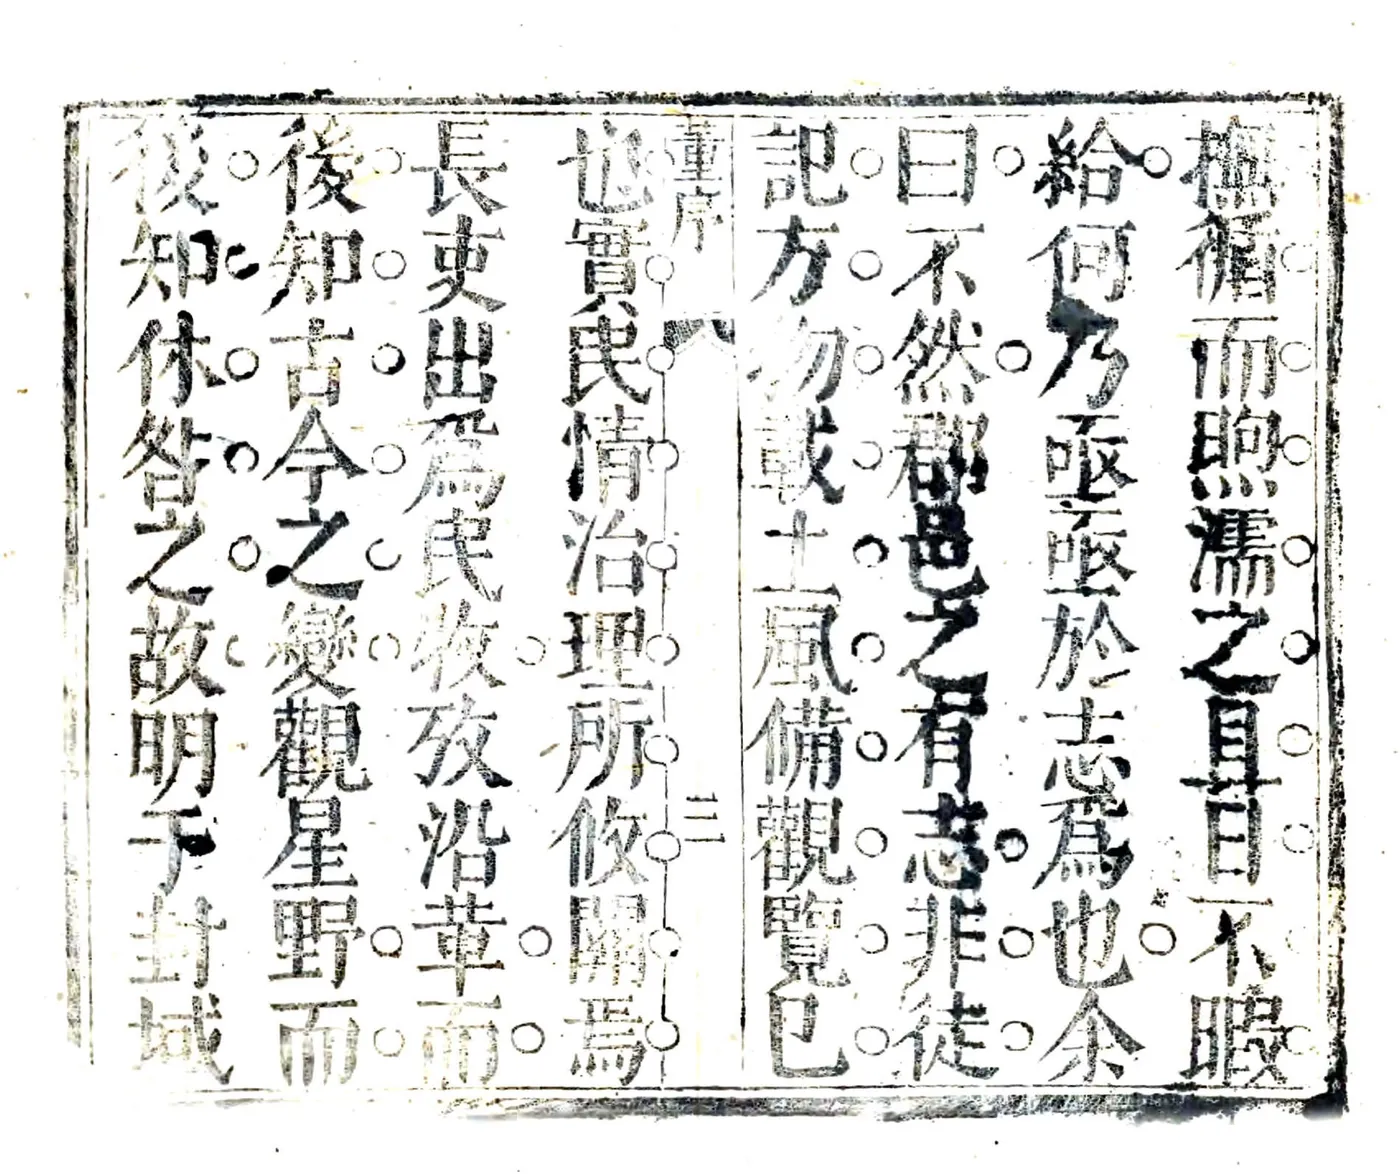 撫循而煦濡之且日不暇
給何乃亟亟於志爲也余
曰不然郡邑之有志非徒
記方物載土風備觀覽已
董序
三
也實民情治理所攸關焉
長吏出爲民牧攷沿革而
後知古今之變觀星野而
後知休咎之故明于封域